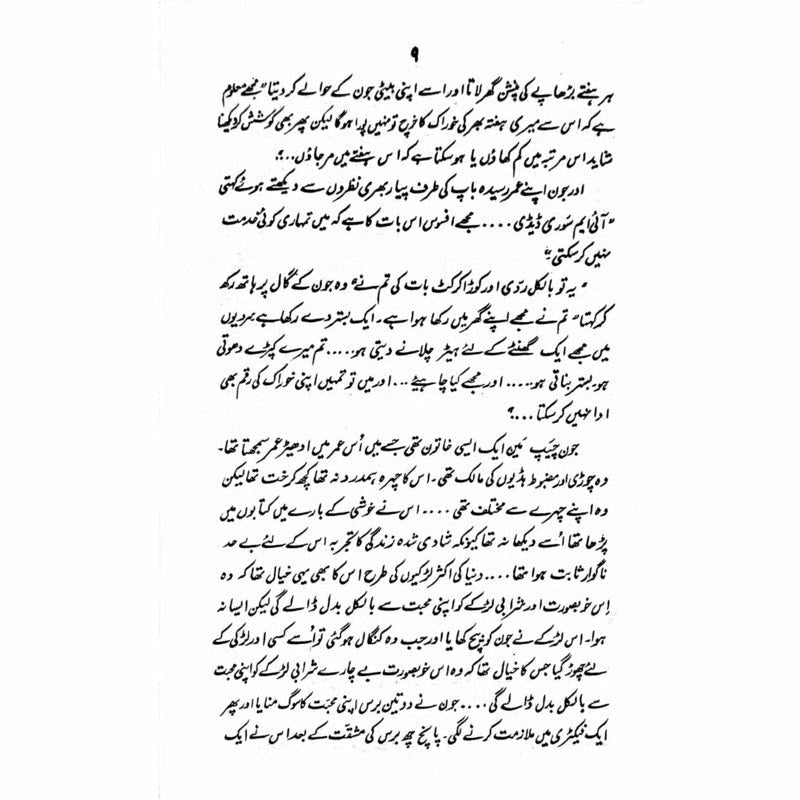 ۹
ہر ہفتے بڑھاپے کی پنشن گھر لاتا اور اسے اپنی بیٹی جون کے حوالے کر دیتا "مجھے معلوم
ہے کہ اس سے میری ہفتہ بھر کی خوراک کا خرچ تو نہیں پورا ہو گا لیکن پھر بھی کوشش کر دیکھنا
شاید اس مرتبہ میں کم کھاؤں یا ہو سکتا ہے کہ اس ہفتے میں مر جاؤں...؟
اور جون اپنے عمر رسیدہ باپ کی طرف پیار بھری نظروں سے دیکھتے ہوئے کہتی
"آئی ایم سَوری ڈیڈی.... مجھے افسوس اس بات کا ہے کہ میں تمہاری کوئی خدمت
نہیں کر سکتی"
"یہ تو بالکل ردّی اور کوڑا کرکٹ بات کی تم نے" وہ جون کے گال پر ہاتھ رکھ
کر کہتا "تم نے مجھے اپنے گھر میں رکھا ہوا ہے۔ ایک بستر دے رکھا ہے سردیوں
میں مجھے ایک گھنٹے کے لئے ہیٹر چلانے دیتی ہو..... تم میرے کپڑے دھوتی
ہو۔ بستر بناتی ہو..... اور مجھے کیا چاہیئے... اور میں تو تمہیں اپنی خوراک کی رقم بھی
ادا نہیں کر سکتا...؟
جون چَیپ مَین ایک ایسی خاتون تھی جسے میں اُس عمر میں ادھیڑ عمر سمجھتا تھا۔
وہ چوڑی اور مضبوط ہڈیوں کی مالک تھی۔ اس کا چہرہ ہمدرد نہ تھا کچھ کرخت تھا لیکن
وہ اپنے چہرے سے مختلف تھی.... اس نے خوشی کے بارے میں کتابوں میں
پڑھا تھا اُسے دیکھا نہ تھا کیونکہ شادی شدہ زندگی کا تجربہ اس کے لئے بے حد
ناگوار ثابت ہوا تھا.... دنیا کی اکثر لڑکیوں کی طرح اس کا بھی یہی خیال تھا کہ وہ
اِس خوبصورت اور شرابی لڑکے کو اپنی محبت سے بالکل بدل ڈالے گی لیکن ایسا نہ
ہوا۔ اس لڑکے نے جون کو بیچ کھایا اور جب وہ کنگال ہو گئی تو اُسے کسی اور لڑکی کے
لئے چھوڑ گیا جس کا خیال تھا کہ وہ اس خوبصورت بے چارے شرابی لڑکے کو اپنی محبت
سے بالکل بدل ڈالے گی.... جون نے دو تین برس اپنی محبّت کا سوگ منایا اور پھر
ایک فیکٹری میں ملازمت کرنے لگی۔ پانچ چھ برس کی مشقّت کے بعد اس نے ایک